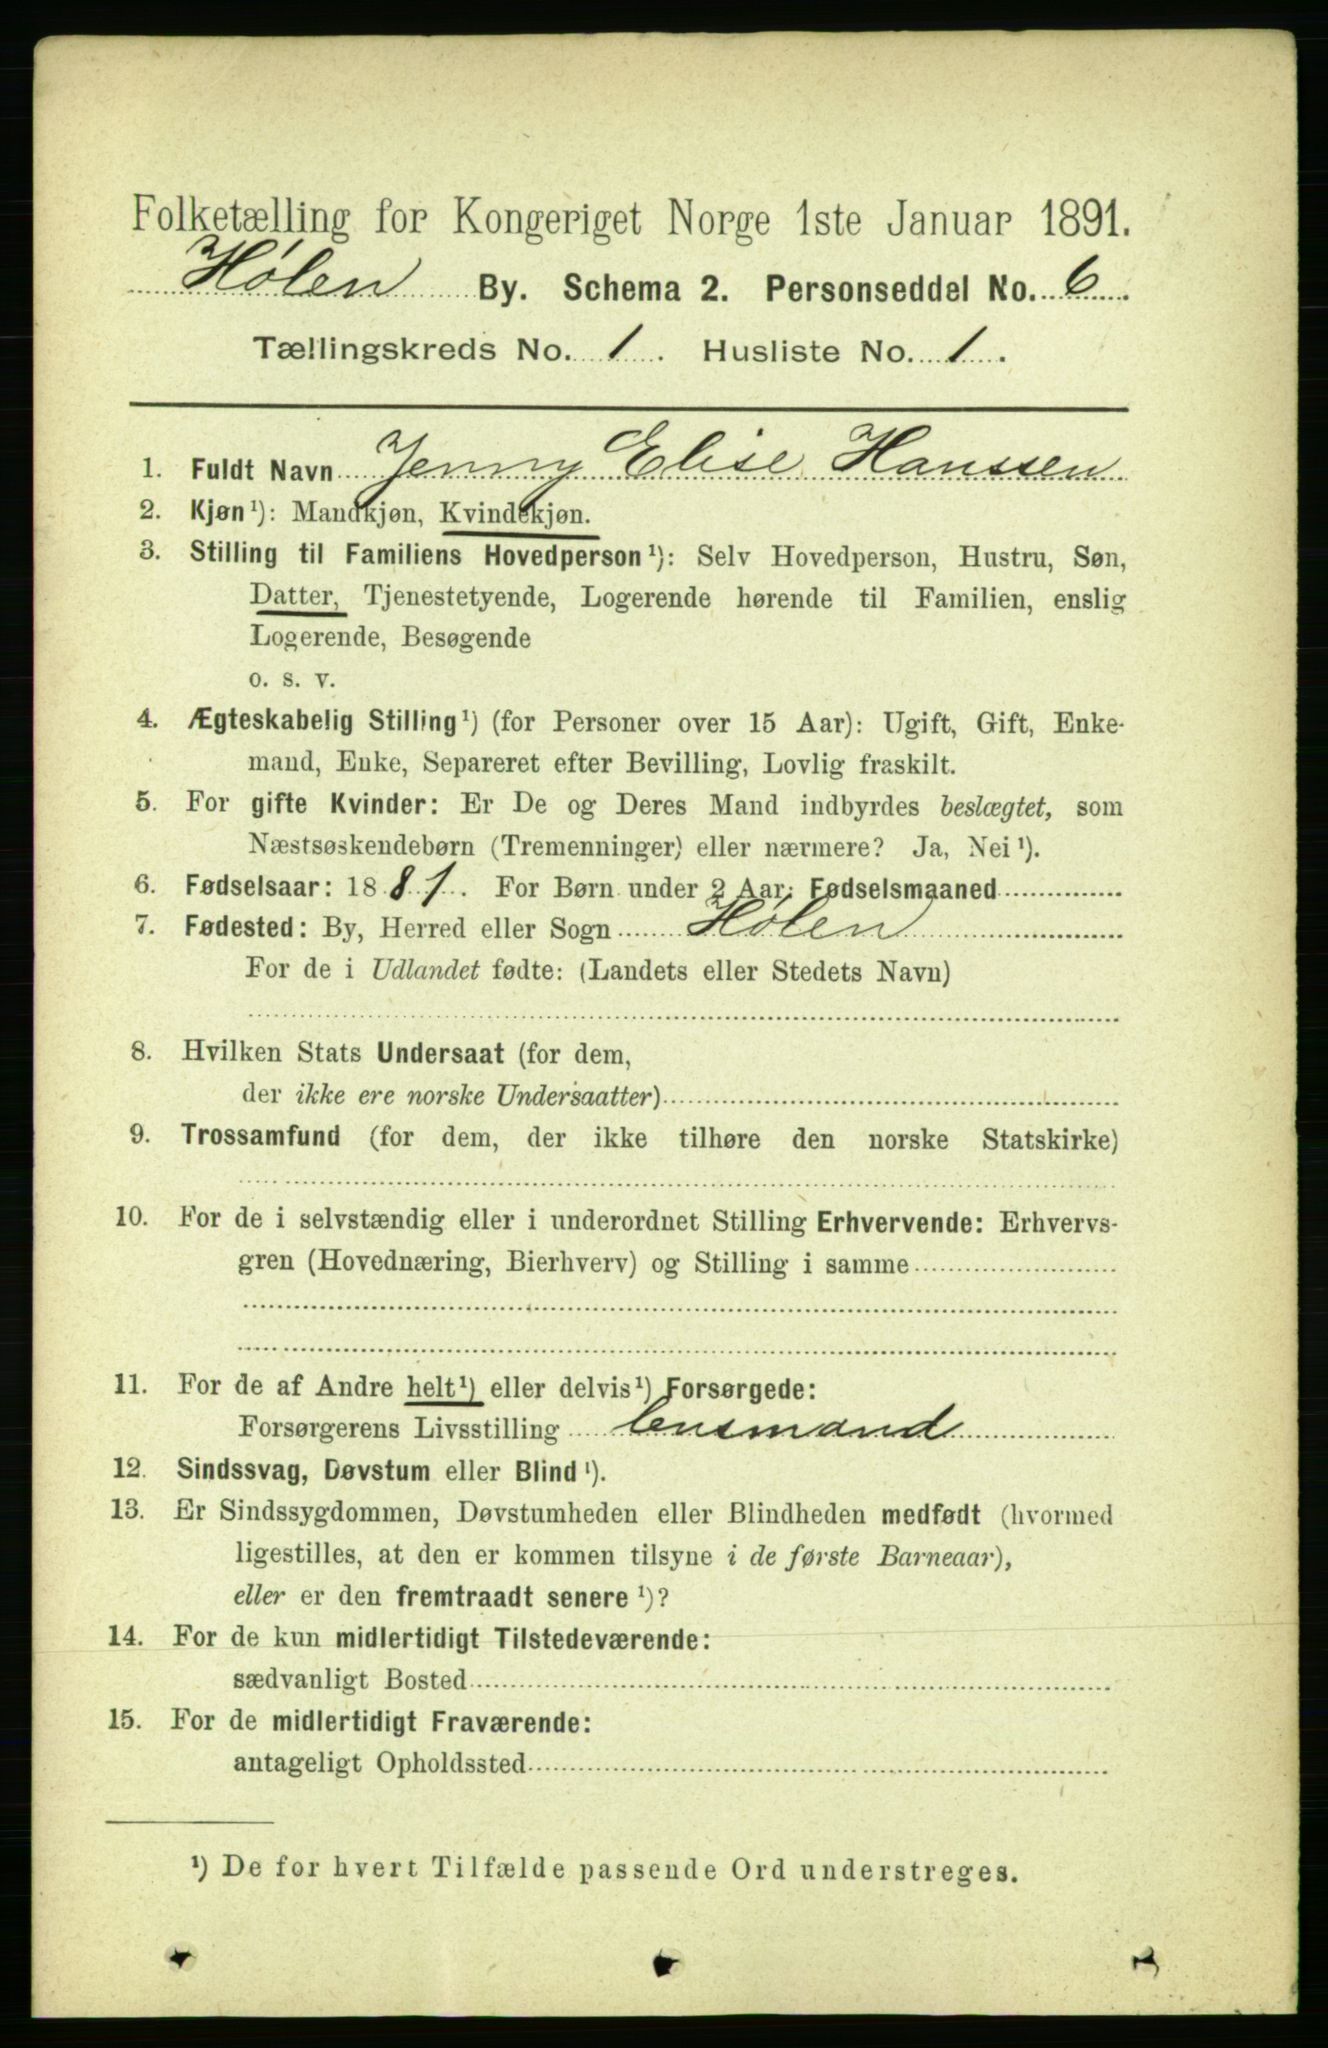 Folketælling for Kongeriget Norge 1ste Januar 1891.
Hølen By. Schema 2. Personseddel No. 6
Tællingskreds No. 1. Husliste No. 1.
1. Fuldt Navn Jenny Elise Hanssen
2. Kjøn¹): Mandkjøn, Kvindekjøn.
3. Stilling til Familiens Hovedperson¹): Selv Hovedperson, Hustru, Søn,
Datter, Tjenestetyende, Logerende hørende til Familien, enslig
Logerende, Besøgende
o. s. v.
4. Ægteskabelig Stilling¹) (for Personer over 15 Aar): Ugift, Gift, Enke-
mand, Enke, Separeret efter Bevilling, Lovlig fraskilt.
5. For gifte Kvinder: Er De og Deres Mand indbyrdes beslægtet, som
Næstsøskendebørn (Tremenninger) eller nærmere? Ja, Nei¹).
6. Fødselsaar: 1881. For Børn under 2 Aar: Fødselsmaaned
7. Fødested: By, Herred eller Sogn Hølen
For de i Udlandet fødte: (Landets eller Stedets Navn)
8. Hvilken Stats Undersaat (for dem,
der ikke ere norske Undersaatter)
9. Trossamfund (for dem, der ikke tilhøre den norske Statskirke)
10. For de i selvstændig eller i underordnet Stilling Erhvervende: Erhvervs-
gren (Hovednæring, Bierhverv) og Stilling i samme
11. For de af Andre helt¹) eller delvis¹) Forsørgede:
Forsørgerens Livsstilling lensmand
12. Sindssvag, Døvstum eller Blind¹).
13. Er Sindssygdommen, Døvstumheden eller Blindheden medfødt (hvormed
ligestilles, at den er kommen tilsyne i de første Barneaar),
eller er den fremtraadt senere¹)?
14. For de kun midlertidigt Tilstedeværende:
sædvanligt Bosted
15. For de midlertidigt Fraværende:
antageligt Opholdssted
¹) De for hvert Tilfælde passende Ord understreges.